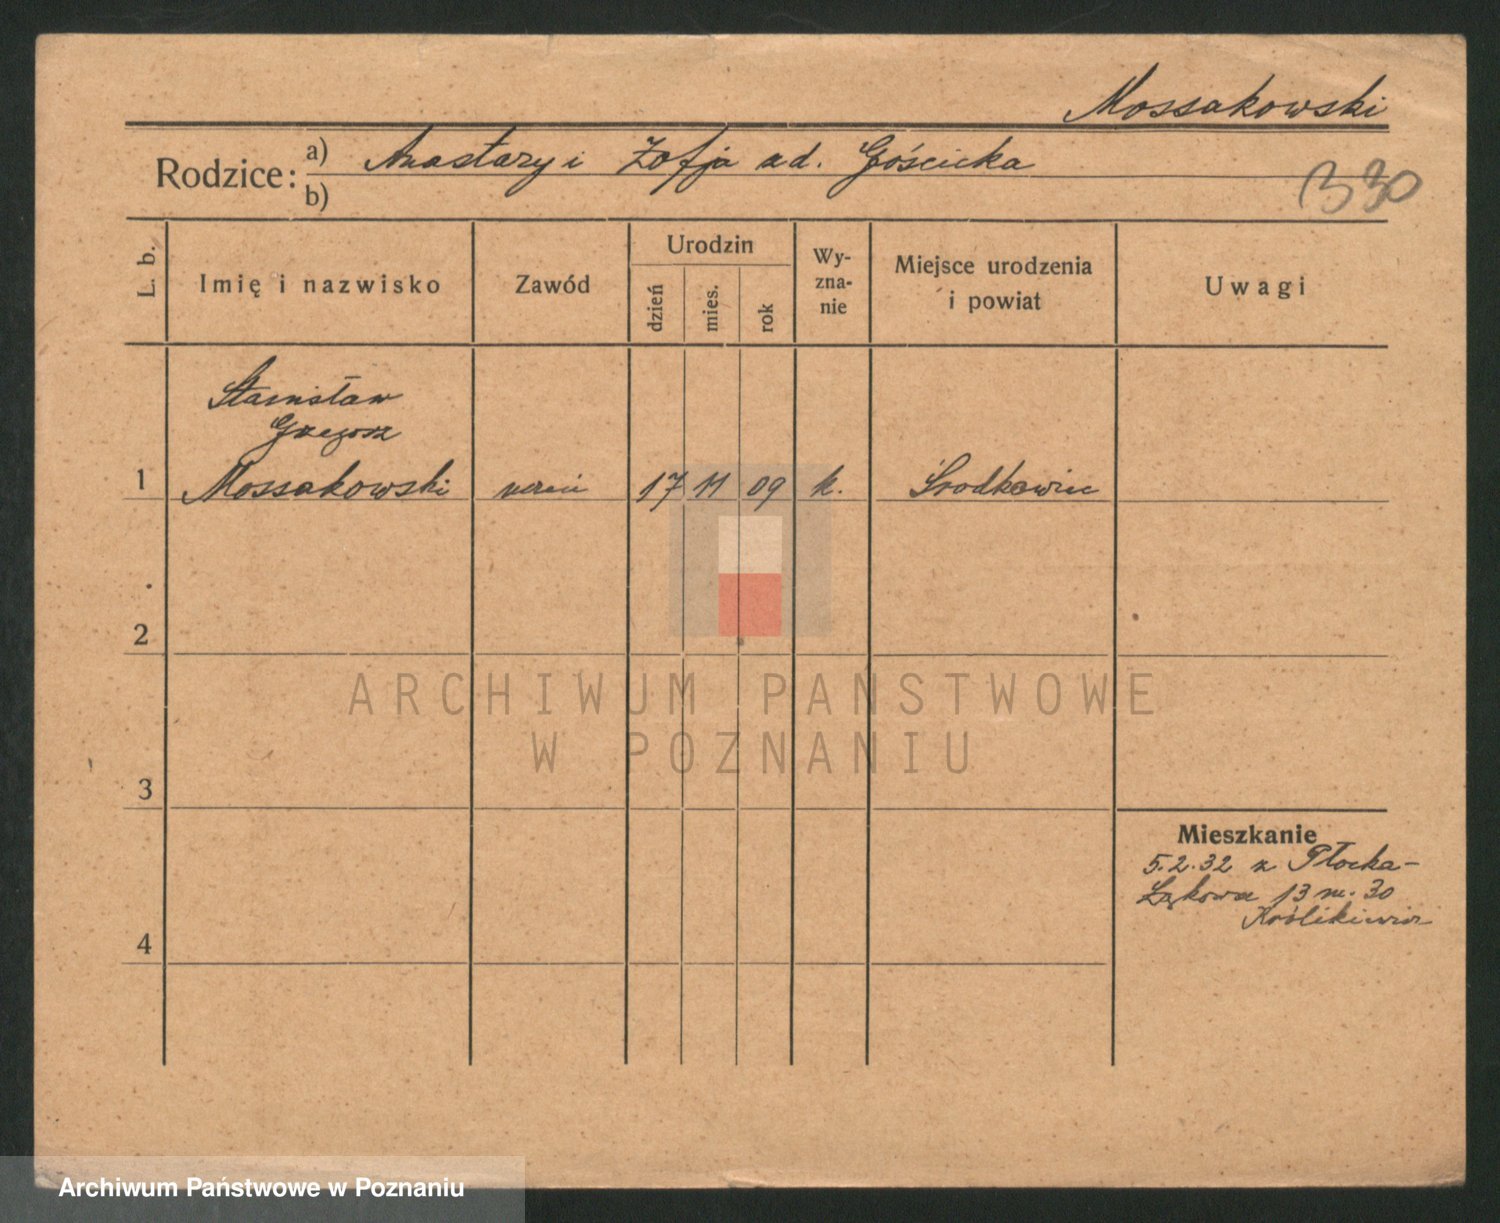 Mossakowski
Rodzice: a) Anastazy i Zofja ad. Gościcka
b)
B30
L. b.
Imię i nazwisko
Zawód
Urodzin
dzień
mies.
rok
Wy-
zna-
nie
Miejsce urodzenia
i powiat
Uwagi
Stanisław
Grzegorz
1 Mossakowski uczeń 17 11 09 k. Srodkowiec
2
3
4
Mieszkanie
5.2.32 z Płocka-
Łąkowa 13 m. 30
Królikiewicz
ARCHIWUM PAŃSTWOWE
W POZNANIU
Archiwum Państwowe w Poznaniu